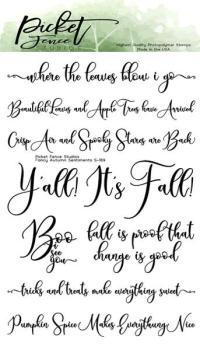 Picket Fence
Studios
Highest Quality Photopolymer Stamps
Made in the USA
where the leaves blow i go
Beautiful Leaves and Apple Trees have Arrived
Crisp Air and Spooky Stares are Back
Picket Fence Studios
Fancy Autumn Sentiments S-169
Y'all! It's Fall!
Boo
i see
you
fall is proof that
change is good
tricks and treats make everything sweet
Pumpkin Spice Makes Everything Nice